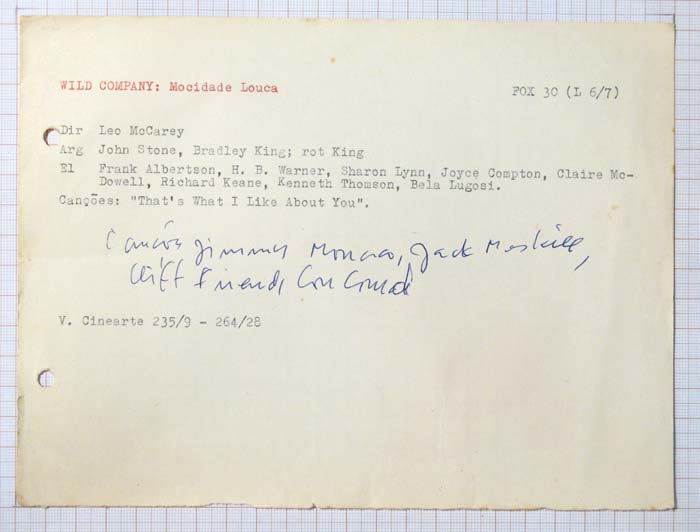 WILD COMPANY: Mocidade Louca FOX 30 (L 6/7)
Dir Leo McCarey
Arg John Stone, Bradley King; rot King
El Frank Albertson, H. B. Warner, Sharon Lynn, Joyce Compton, Claire Mc-
Dowell, Richard Keane, Kenneth Thomson, Bela Lugosi.
Canções: "That's What I Like About You".
Jimmy Monaco, Jack Meskill,
Cliff Friend, Con Conrad
V. Cinearte 235/9 - 264/28